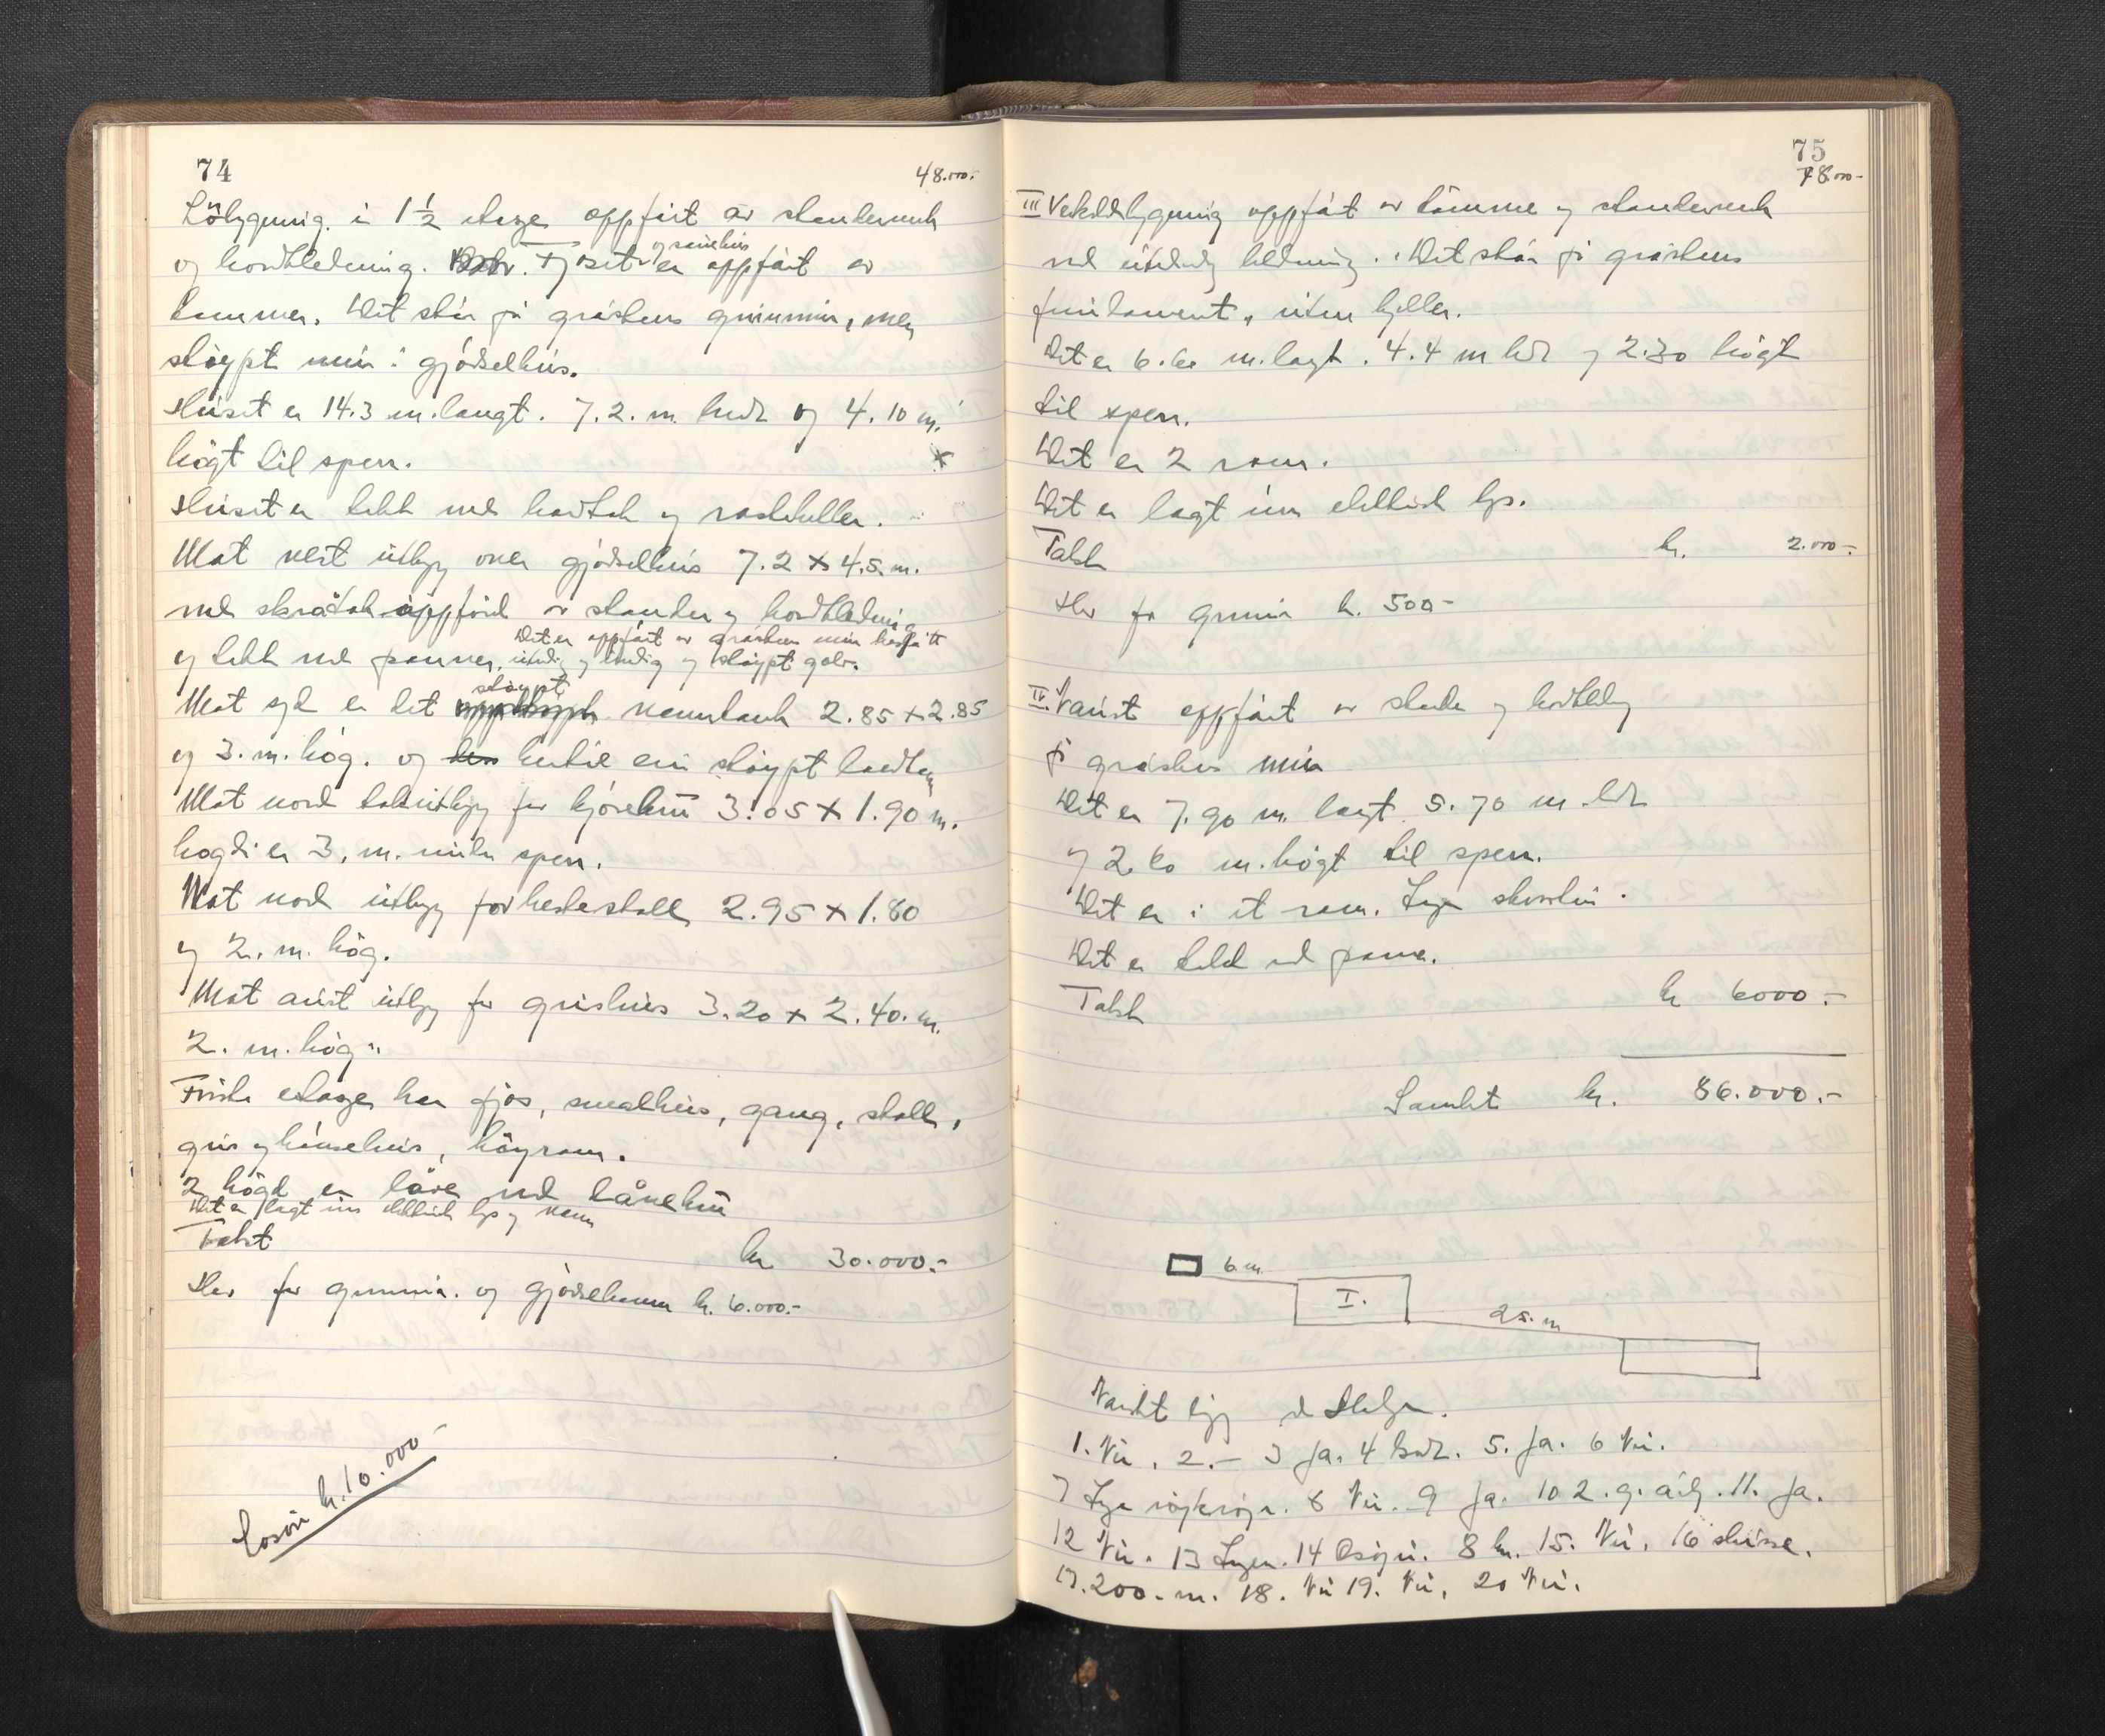 74
48.000.-
Löbygning i 1½ etage oppfört av standerverk
og bordkledning. Fjoset og sauehus er oppfört av
tømmer. Det står på gråstens grunnmur, men
støypt mur i gjødselhus.
Huset er 14.3 m. langt. 7.2. m. bredt og 4.10 m.
högt til sperr.
Huset er tekt med bordtak og rasteheller.
Mot vest utbygg over gjødselhus 7.2 x 4.5 m.
med skråtak oppförd av stander og bordkledning
og tekt med panner. Det er oppfört av gråstens mur
utvendig og innvendig og støypt golv.
Mot syd er det støypt vanntank 2.85 x 2.85
og 3. m. høg. og
Mot nord utbygg for kjørebru 3.05 x 1.90 m.
høgdi er 3. m. under sperr.
Mot nord utbygg for hestestall 2.95 x 1.80
og 2. m. høg.
Mot aust utbygg for grishus 3.20 x 2.40. m.
2. m. høg.
Fyrste etage har fjøs, smalhus, gang, stall,
gris og hønsehus, høyrom.
2 høgd er låve med låvebru
Det er lagt inn elektrisk lys og vann
Takst kr 30.000.-
Herav for grunnmur og gjødselkum kr. 6.000.-
kr. 10.000-
75
78.000-
III Vedskålbygning oppfört av tømmer og standerverk
med utvendig kledning. Det står på gråstens
fundament, uten kjeller.
Det er 6.60 m. langt. 4.4 m bredt og 2.30 högt
til sperr.
Det er 2 rom.
Det er lagt inn elektrisk lys.
Takst kr. 2.000-
Herav for grunnmur kr. 500-
IV. Naust oppfört av stander og bordkledning
på gråstens mur
Det er 7.90 m. langt 5.70 m. bredt
og 2.60 m. högt til sperr.
Det er i et rom. Ingen skorstein.
Det er tekt med panner.
Takst kr 6000.-
Samlet kr. 86.000.-
6 m.
I.
25. m
Naustet ligg ved
1. Nei. 2. - 3 Ja. 4 bord. 5. Ja. 6 Nei.
7 Ingen 8 Nei. 9 Ja. 10 2. g. årlig. 11. Ja.
12 Nei. 13 Ingen. 14 8 km. 15. Nei. 16
17. 200. m. 18. Nei 19. Nei. 20 Nei.